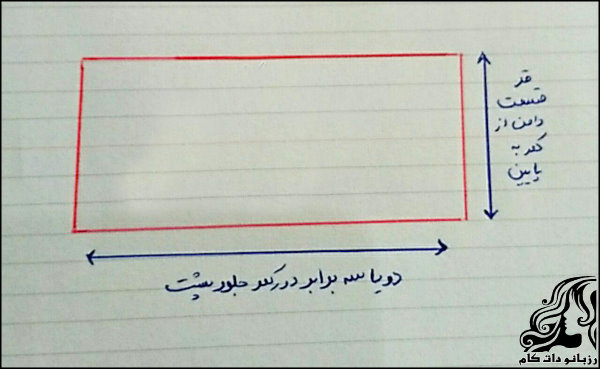 قد
قسمت
دامن از
کمر به
پایین
دو یا سه برابر دور کمر جلو و پشت
رزبانو دات کام